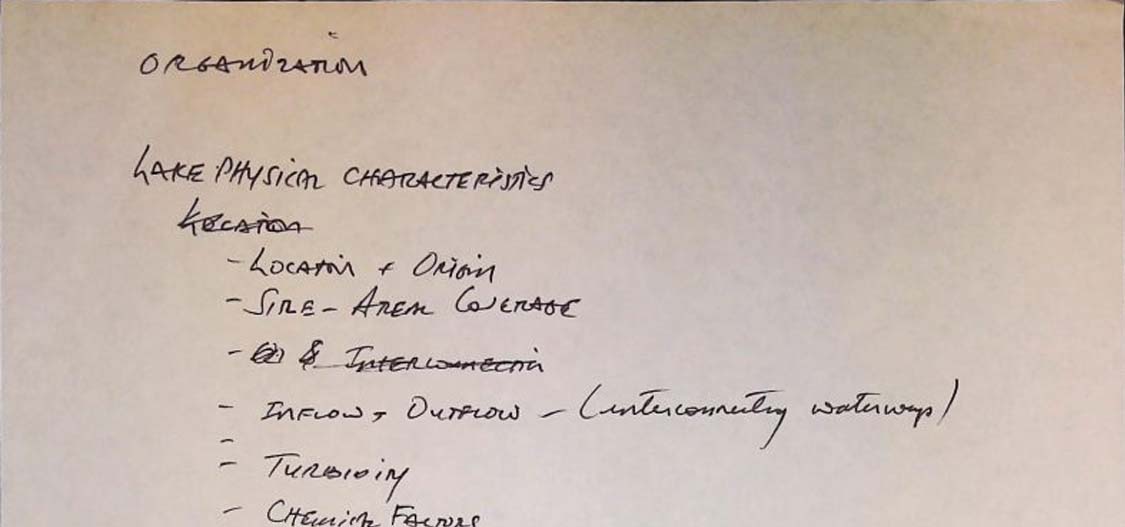 ORGANIZATION
LAKE PHYSICAL CHARACTERISTICS
LOCATION
- LOCATION + ORIGIN
- SIZE - AREAL COVERAGE
- & INTERCONNECTION
- INFLOW + OUTFLOW - (interconnecting waterways)
-
- TURBIDITY
- CHEMICAL FACTORS